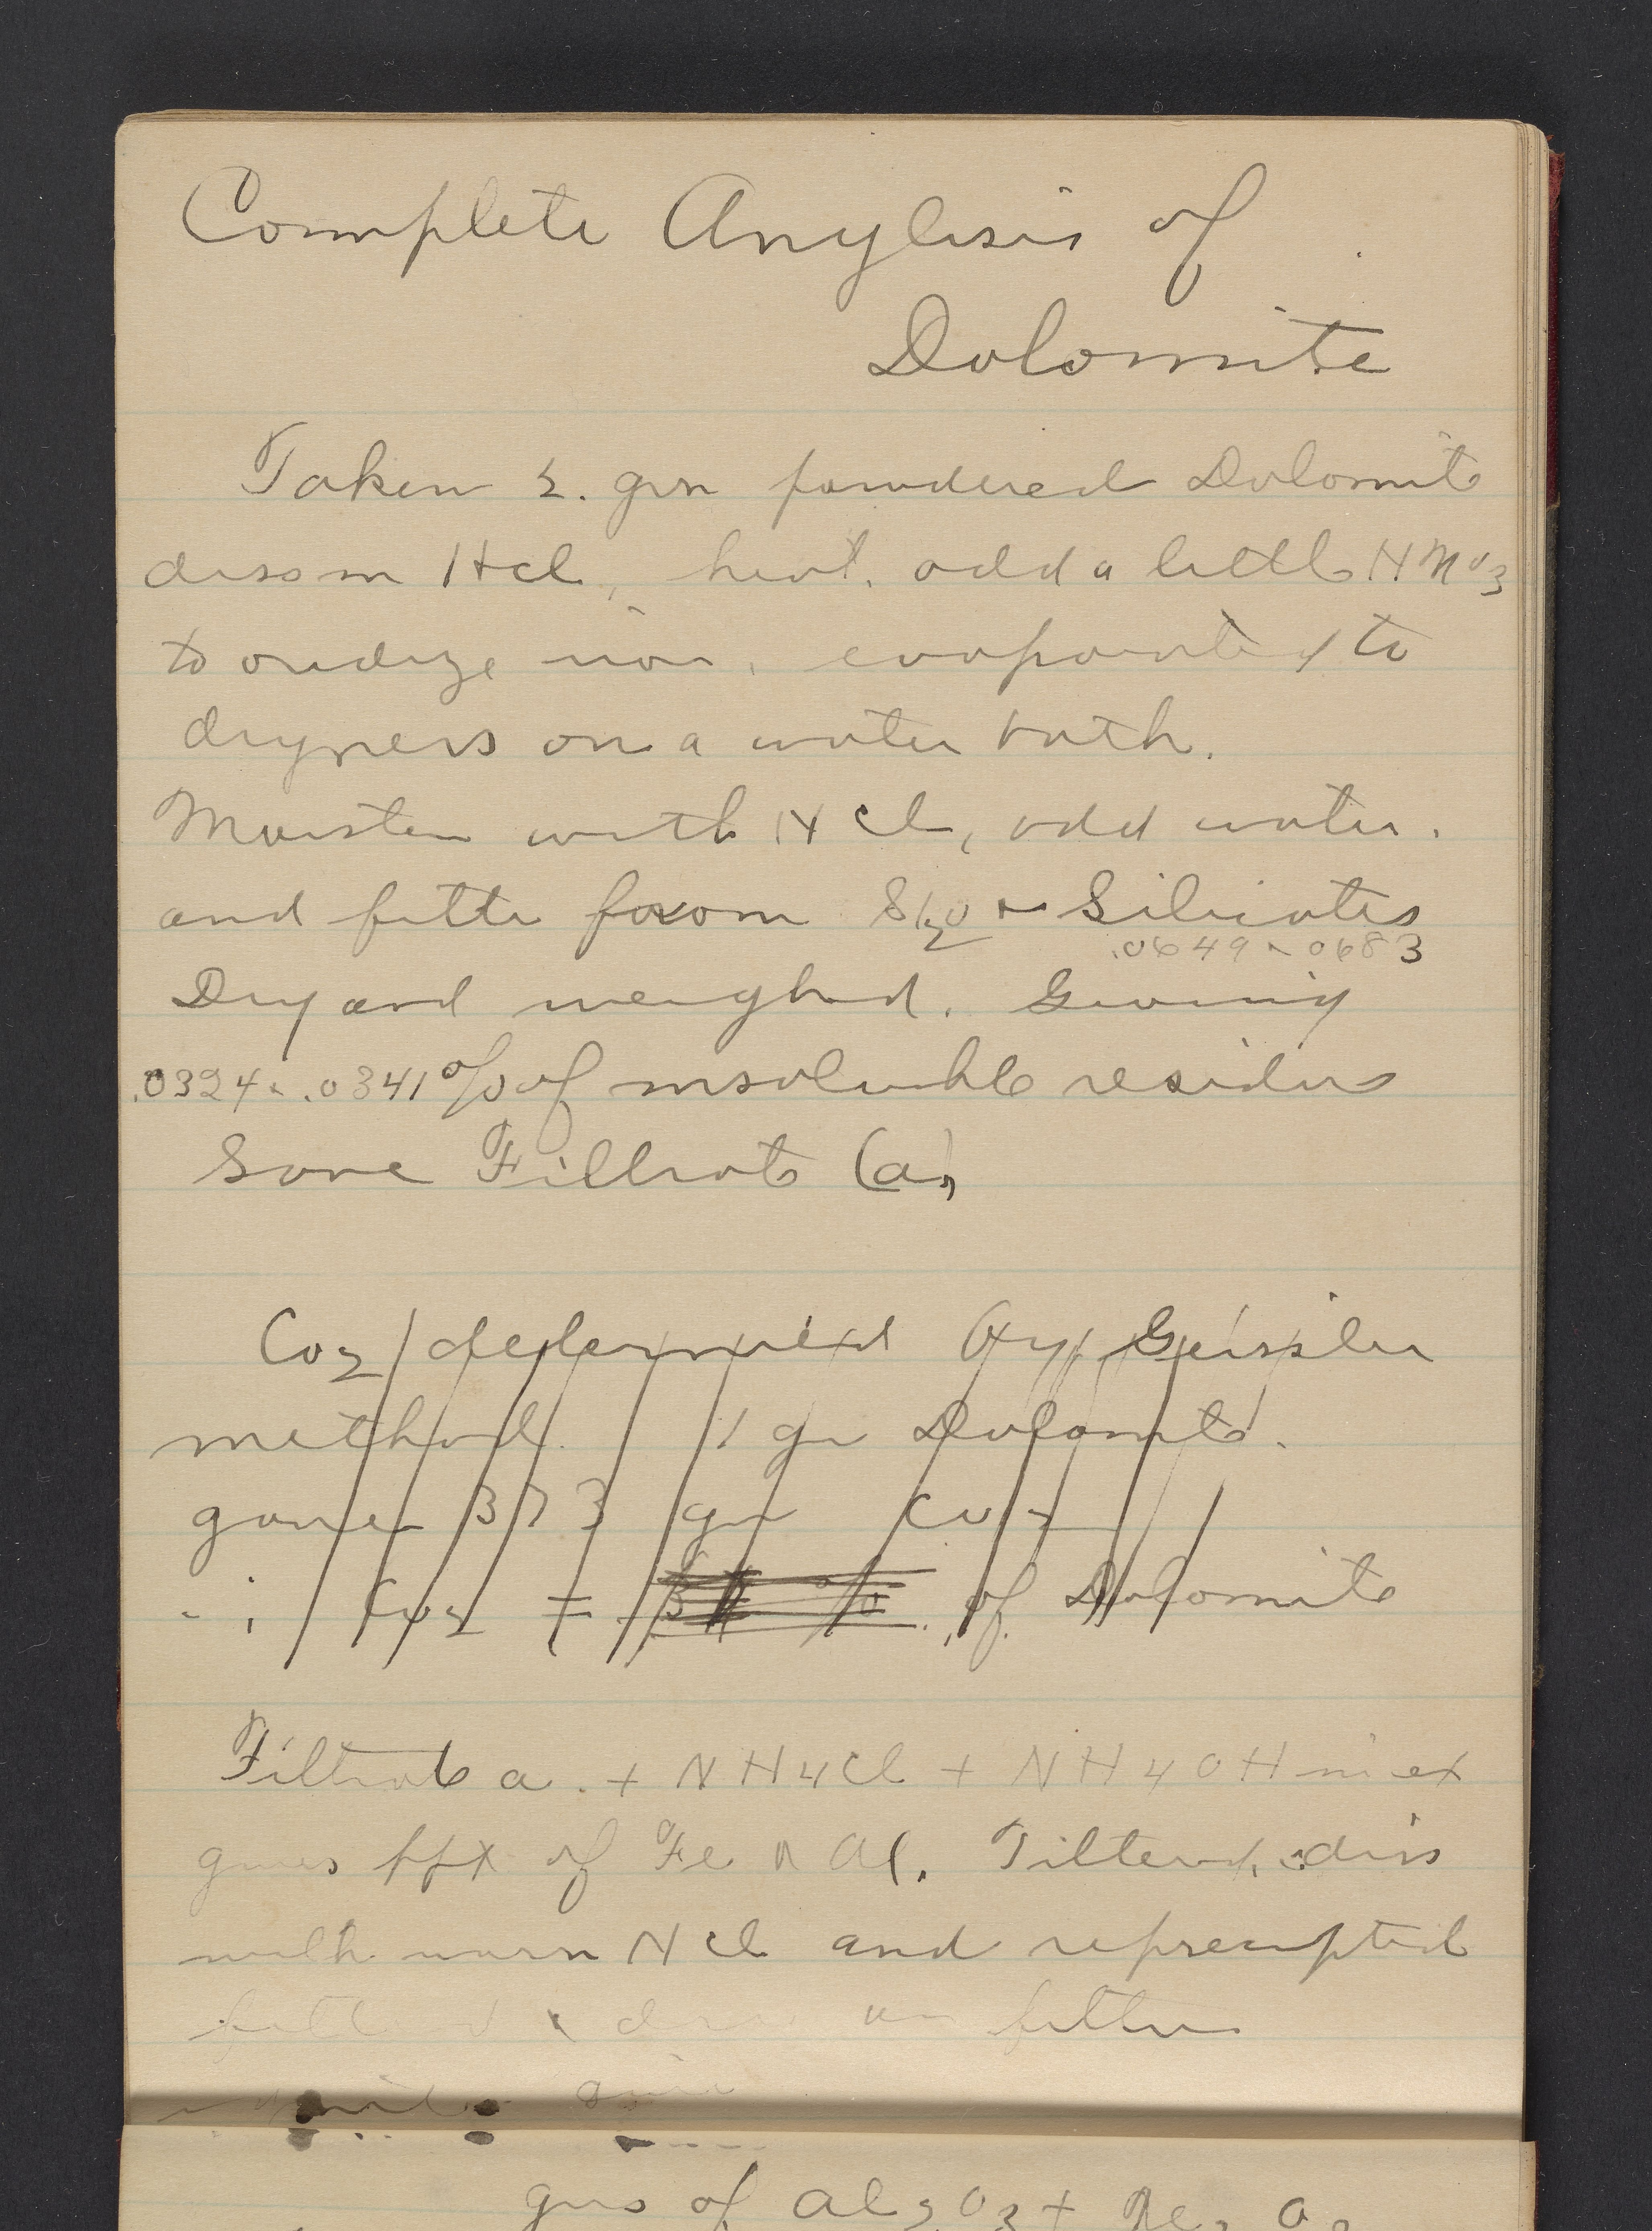 Complete Anylisis of
Dolomite
Taken 2. grm powdered Dolomite
diss in HCl, heat. add a little HNO3
to oxidize iron. evaporated to
dryness on a water bath.
Moisten with HCl, add water.
and filter from SiO2 + Silicates
.0649 - 0683
Dry and weighed. Giving
.0324 - .0341 % of insoluble residue
Save Filtrate (a)
CO2 determined by Geissler
method. 1 gr Dolomite.
gave 373 gr CO2
CO2 = of Dolomite
Filtrate a. + NH4Cl + NH4OH in ex
gives ppt of Fe & Al. Filtered, diss
with warm HCl and reprecipted
filter
gms of Al2O3 + Fe2O3